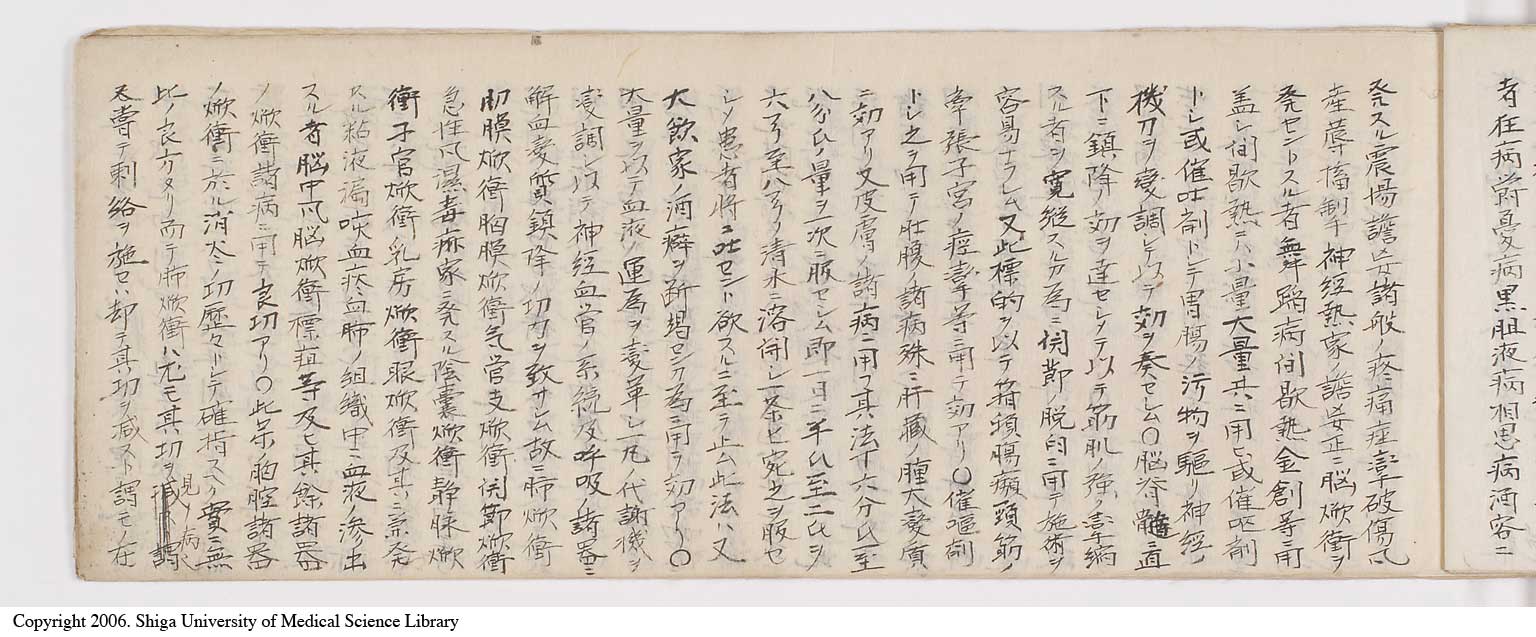 者在病鬱憂病黒胆液病相思病酒客ニ
発スル震揚譫妄諸般ノ疼痛痙攣破傷風
産蓐搐制神経熱家ノ譫妄正ニ脳焮衝ヲ
発セントスル者無〻踏病間歇熱金創等用
盖シ間歇熱ニハ小量大量共ニ用ヒ或催嘔剤
トシ或催吐剤トシテ胃腸ノ汚物ヲ駆リ神経ノ
機力ヲ変調シテ以テ効ヲ奏セシム〇脳脊髄直
下ニ鎮降ノ効ヲ達セシメテ以テ筋肌ノ強攣縮
スル者ヲ寛縦スル力為ニ関節ノ脱臼ニ用テ施術ヲ
容易ナラシム又此標的ヲ以テ箝頓腸癩頸筋ノ
牽張子宮ノ痙攣等ニ用テ効アリ〇催嘔剤
トシ之ヲ用テ肚腹諸病殊ニ肝臓ノ腫大変質
ニ効アリ又皮膚ノ諸病ニ用フ其法十六分氏至
八分氏ノ量ヲ一次ニ服セシム即一日ニ半氏至二氏ヲ
六アリ至八アリノ清水ニ溶開シ一茶匕宛之ヲ服セ
シメ患者将ニ吐セント欲スルニ至テ止ム此法ハ又
大飲家ノ酒癖ヲ断揭センカ為ニ用ヲ効アリ〇
大量ヲ以テ血液ノ運為ヲ変革シ一凡ノ代謝機ヲ
変調シ以テ神経血管ノ系統及呼吸ノ諸器ニ
解血変質鎮降ノ功力ヲ致サシム故ニ肺焮衝
肋膜焮衝胸膜焮衝気管支焮衝関節焮衝
急性風湿毒痲家ニ発スル陰嚢焮衝静脉焮
衝子宮焮衝乳房焮衝眼焮衝及其ニ兼発
スル粘液漏咳血痰血肺ノ組織中ニ血液ノ滲出
スル者脳中風脳焮衝標疽等及ヒ其餘諸器
ノ焮衝諸病ニ用テ良功アリ〇此呆ノ胸腔諸器
ノ焮衝ニ於ル消炎ノ功歴々トシテ確指スヘク實ニ無
此ノ良方タリ而テ肺焮衝ハ尤モ其功ヲ見ル病也謂
天尊テ刺絡ヲ施セハ却テ其功ヲ減スト謂モノ在
Copyright 2006. Shiga University of Medical Science Library